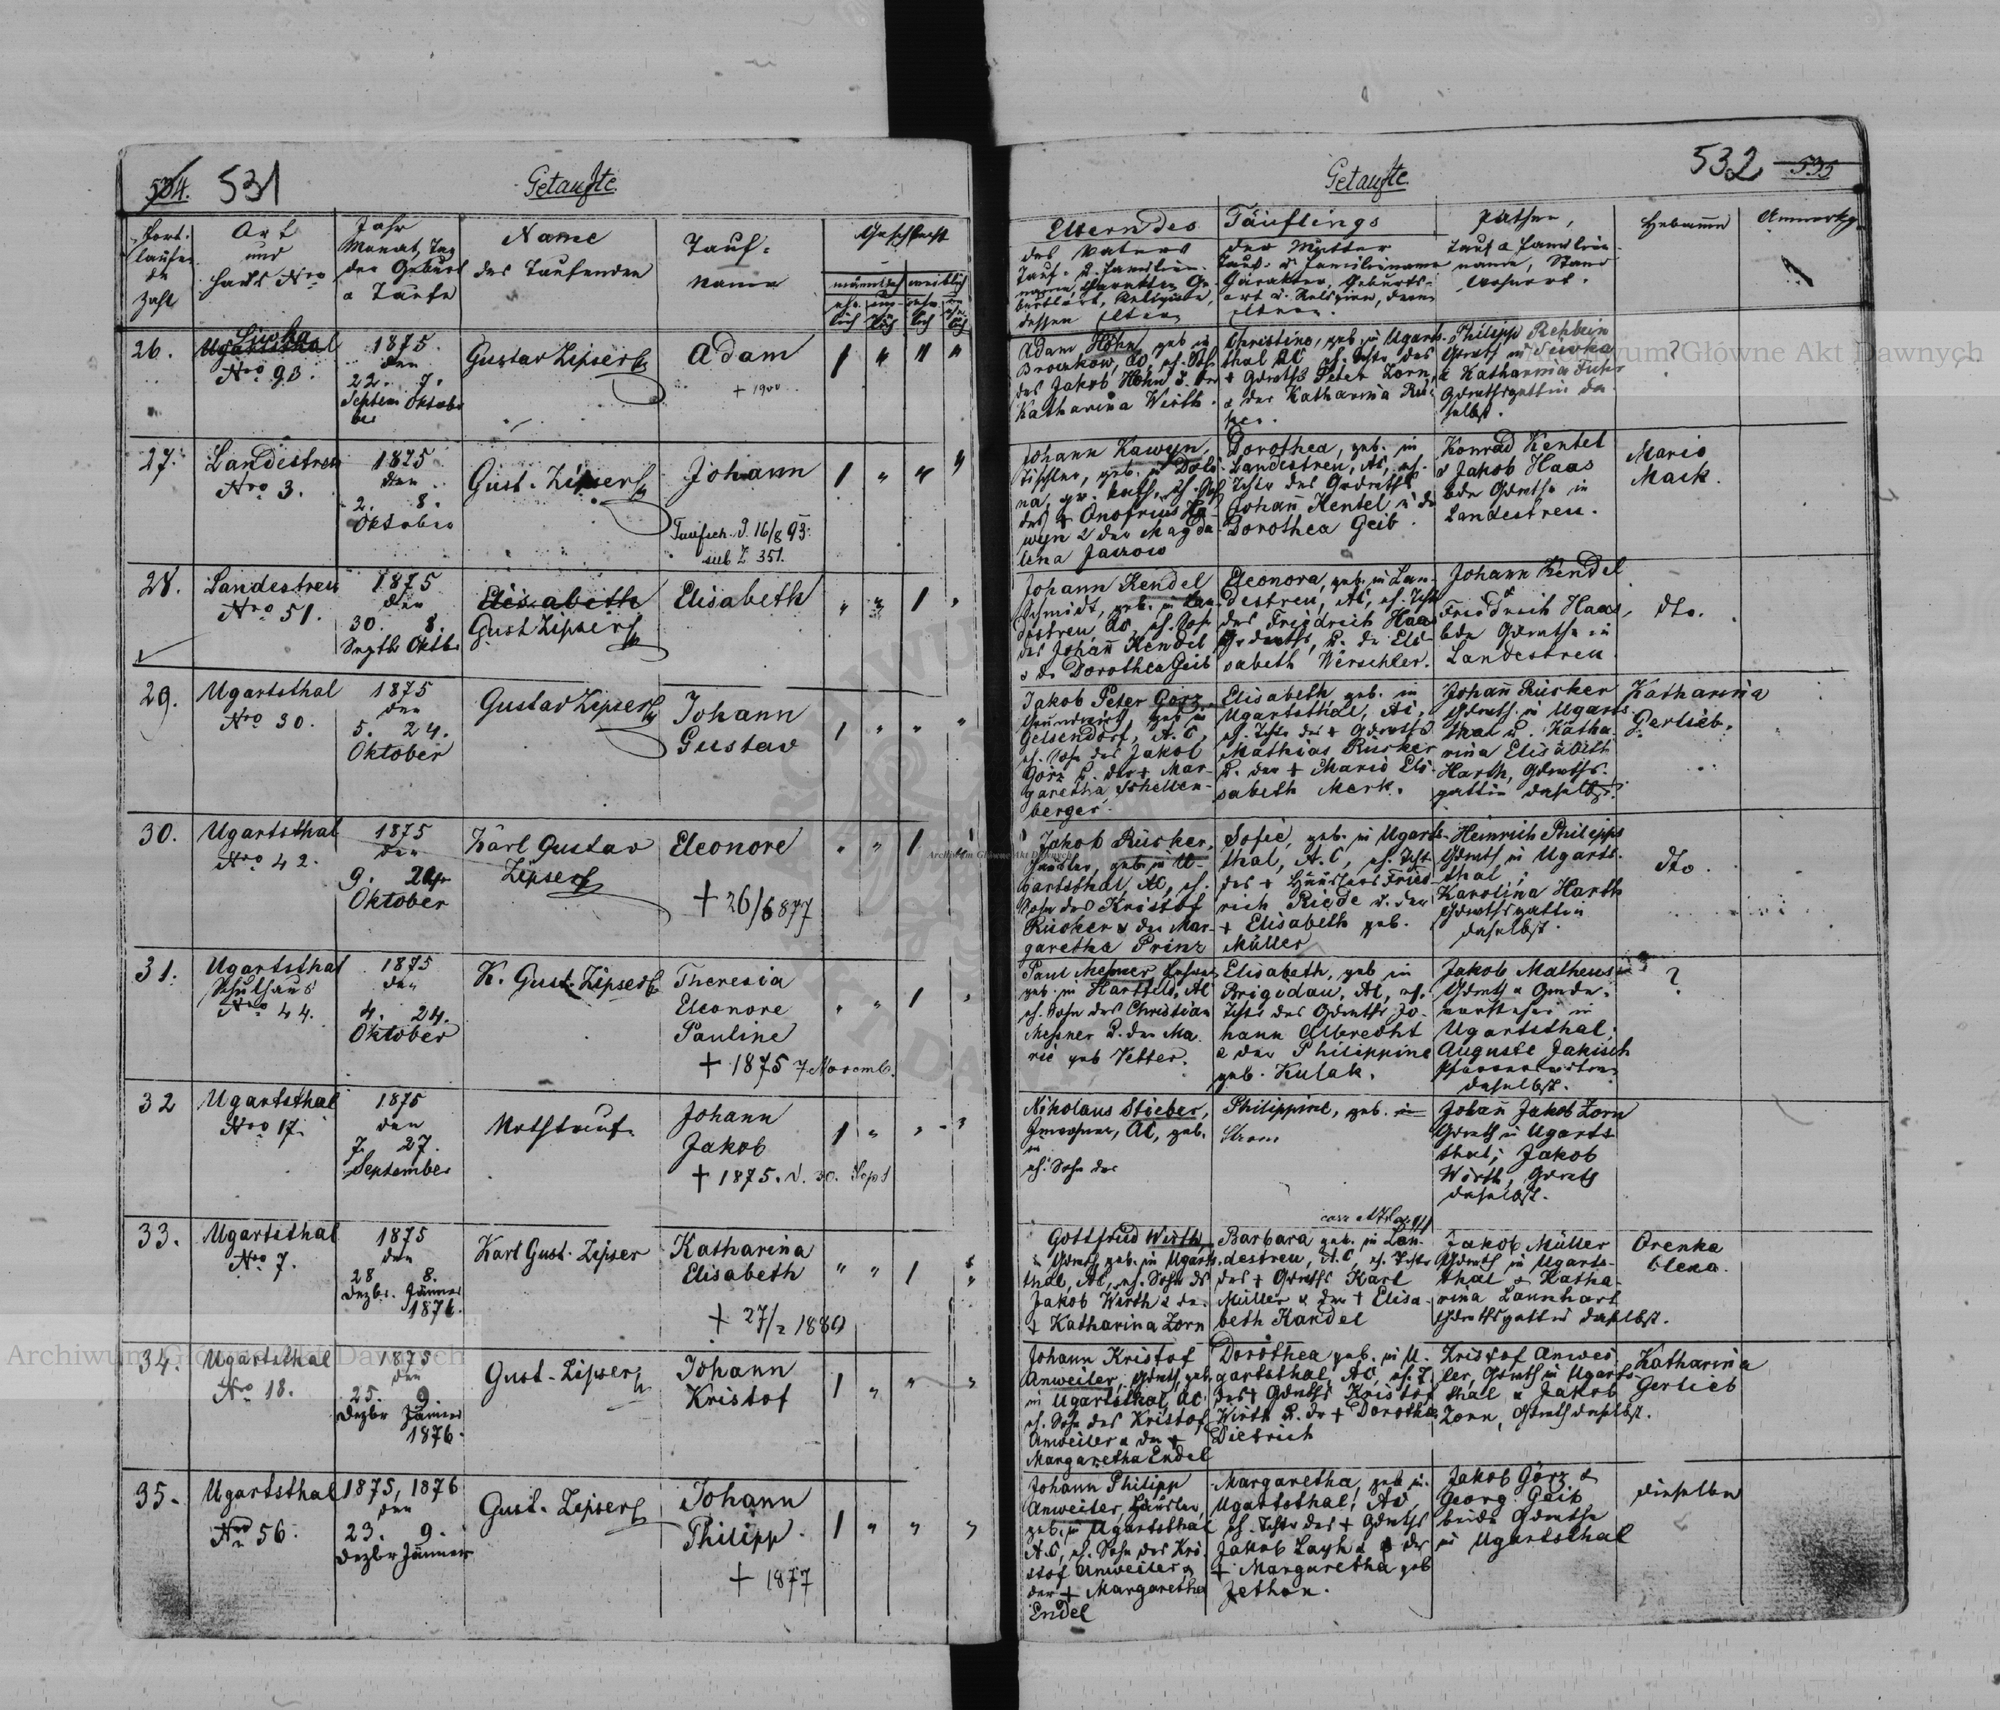 534. 531
Getaufte
Fort-
laufen
de
Zahl
Ort
und
Haus Nro
Jahr
Monat, Tag
der Geburt
u Taufe
Name
des Taufenden
Tauf-
name
Geschlecht
männlich weiblich
26.
Ugartsthal
Siwka
Nro 93.
1875
den
22. 7.
Septem Oktober
ber
Gustav Zipser
Adam
+ 1900
1 " " "
27.
Landestreu
Nro 3.
1875
den
2. 8.
Oktober
Gust. Zipser
Johann
Taufsch. d. 16/8 93.
sub Z 351.
1 " " "
28.
Landestreu
Nro 51.
1875
den
30. 8.
Septbr Oktbr
Elisabeth
Gust Zipser
Elisabeth
" " 1 "
29.
Ugartsthal
Nro 30.
1875
den
5. 24.
Oktober
Gustav Zipser
Johann
Gustav
1 " " "
30.
Ugartsthal
Nro 42.
1875
den
9. 24
Oktober
Karl Gustav
Zipser
Eleonore
+ 26/6 877
" " 1 "
31.
Ugartsthal
Schulhaus
Nro 44.
1875
den
4. 24.
Oktober
K. Gust. Zipser
Theresia
Eleonore
Pauline
+ 1875 7 Novemb.
" " 1 "
32
Ugartsthal
Nro 17.
1875
den
7. 27.
September
Nothtauf
Johann
Jakob
+ 1875. d. 30. Sept
1 " " "
33.
Ugartsthal
Nro 7.
1875
den
28 8.
Dezbr. Jänner
1876.
Karl Gust. Zipser
Katharina
Elisabeth
+ 27/2 1880
" " 1 "
34.
Ugartsthal
Nro 18.
1875
den
25. 9.
Dezbr Jänner
1876.
Gust. Zipser
Johann
Kristof
1 " " "
35.
Ugartsthal
Nro 56.
1875, 1876
den
23. 9.
Dezbr Jänner
Gust. Zipser
Johann
Philipp.
+ 1877
1 " " "
Getaufte
532 535
Eltern des Täuflings
des Vaters
Tauf- u. Familien-
name, Charakter, Ge-
burtsort, Religion,
dessen Eltern
der Mutter
Tauf- u. Familienname
Charakter, Geburts-
ort u. Religion, deren
Eltern.
Pathen,
Tauf u Familien-
name, Stand
Wohnort.
Hebamme
Anmerkg.
Adam Höhn, geb in
Broczkow, AC, eh. Sohn
des Jakob Höhn u. der
Katharina Wirth.
Christine, geb in Ugarts-
thal AC, eh. Tochter des
+ Gdwrths Peter Zorn,
u der Katharina Rüc-
ker.
Philipp Rehbein
Gdwrth in Siwka
u Katharina Fuhr
Gdwrthsgattin da-
selbst.
?
Johann Kawyn,
Tischler, geb. in Doli-
na, gr. kath., eh. Sohn
des + Onofrius Ka-
wyn u der Magda-
lena Jaxow
Dorothea, geb. in
Landestreu, AC, eh.
Tochter des Gdwrths
Johann Kentel u der
Dorothea Geib.
Konrad Kentel
u Jakob Haas
bde Gdwrthe in
Landestreu.
Maria
Mack.
Johann Kendel
Schmidt, geb. in Lan-
destreu, AC, eh. Sohn
des Johann Kendel
u der Dorothea Geib
Eleonora, geb. in Lan-
destreu, AC, eh. Tocht
des Friedrich Haas
Gdwrths, u. der Eli-
sabeth Werschler.
Johann Kendel
u
Friedrich Haas,
bde Gdwrthe in
Landestreu
dto.
Jakob Peter Görz,
Grundwirt, geb in
Gelsendorf, A.C,
eh. Sohn des Jakob
Görz u. der + Mar-
garetha Schellen-
berger.
Elisabeth geb. in
Ugartsthal, AC,
eh. Tochter des + Gdwrths
Mathias Rücker
u. der + Maria Eli-
sabeth Merk.
Johann Rücker
Gdwrth. in Ugarts-
thal u. Katha-
rina Elisabeth
Harth, Gdwrths-
gattin daselbst.
Katharina
Gerlieb.
Jakob Rücker,
Häusler, geb. in U-
gartsthal, AC, eh.
Sohn des Kristof
Rücker u der Mar-
garetha Prinz
Sofie, geb. in Ugarts-
thal, A.C, eh. Tocht
des + Häuslers Fried-
rich Riede u. der
+ Elisabeth geb.
Müller
Heinrich Philipps
Gdwrth in Ugarts-
thal;
Karolina Harth
Gdwrthsgattin
daselbst.
dto.
Paul Messner, Lehrer,
geb. in Hartfeld, AC
eh. Sohn des Christian
Messner u. der Ma-
rie geb Vetter.
Elisabeth, geb in
Brigidau, AC, eh.
Tochter des Gdwrths Jo-
hann Albrecht
u der Philippine
geb. Kulak.
Jakob Matheus
Gdwrth u Gmde-
vorsteher in
Ugartsthal;
Auguste Jakisch
daselbst.
?
Nikolaus Stieber,
Inwohner, AC, geb.
in
eh. Sohn des
Philippine, geb. in
Strom
Johann Jakob Zorn
Gdwrth in Ugarts-
thal; Jakob
Wirth, Gdwrth
daselbst.
Gottfried Wirth,
Gdwrth geb. in Ugarts-
thal, AC, eh. Sohn des
Jakob Wirth u der
+ Katharina Zorn
Barbara geb. in Lan-
destreu, A.C, eh. Tochter
des + Gdwrths Karl
Müller u der + Elisa-
beth Kandel
Jakob Müller
Gdwrth in Ugarts-
thal u Katha-
rina Launhart
Gdwrthsgattin daselbst.
Orenka
Olena.
Johann Kristof
Anweiler, Gdwrth, geb.
in Ugartsthal, AC,
eh. Sohn des Kristof
Anweiler u der +
Margaretha Endel
Dorothea geb. in U-
gartsthal, AC, eh. T.
des + Gdwrths Kristof
Wirth u. der + Dorothea
Dietrich
Kristof Anwei-
ler, Gdwrth in Ugarts-
thal u Jakob
Zorn, Gdwrth daselbst.
Katharina
Gerlieb
Johann Philipp
Anweiler, Häusler,
geb. in Ugartsthal
A.C, eh. Sohn des Kri-
stof Anweiler u
der + Margaretha
Endel
Margaretha, geb in
Ugartsthal, AC,
eh. Tochter des + Gdwrths
Jakob Layh u der
+ Margaretha geb
Jethon.
Jakob Görz u
Georg Geib
beide Gdwrthe
in Ugartsthal
dieselbe
Archiwum Główne Akt Dawnych
Archiwum Główne Akt Dawnych
Archiwum Główne Akt Dawnych